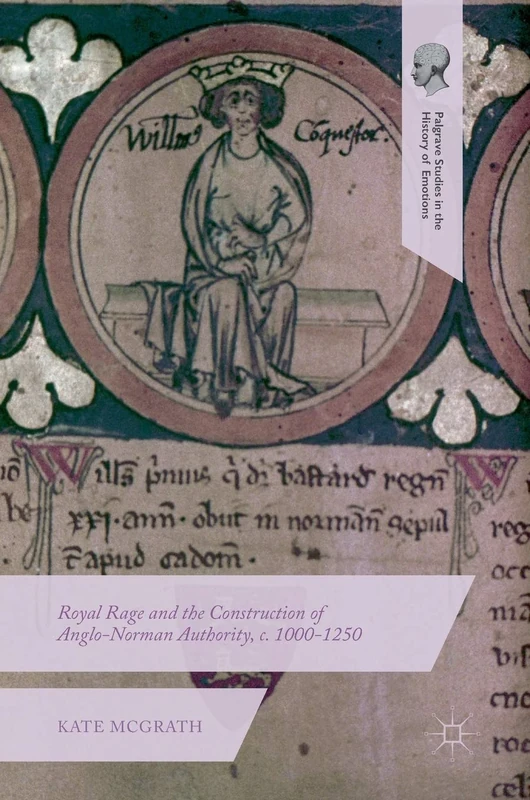 Palgrave Studies in the
History of Emotions
Willm̄s Coq̄stor.
Wills p̄mus q̄ dr̄ bastard regn̄
xxi. ann. obiit in norman̄ sepul
t apud cadom.
W
Royal Rage and the Construction of
Anglo-Norman Authority, c. 1000-1250
KATE MCGRATH